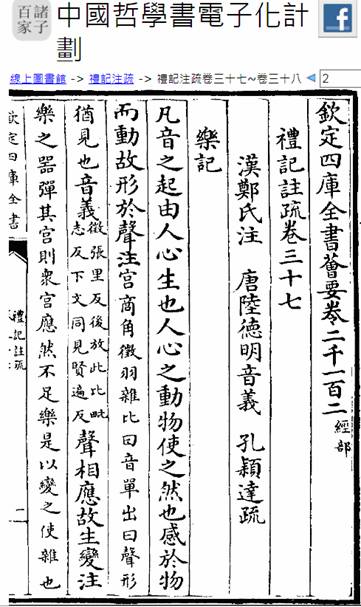 諸子
百家
中國哲學書電子化計
劃
f
線上圖書館 -> 禮記注疏 -> 禮記注疏卷三十七~卷三十八
2
欽定四庫全書薈要卷二千一百二 經部
禮記註疏卷三十七
漢鄭氏注 唐陸德明音義 孔穎達疏
樂記
凡音之起由人心生也人心之動物使之然也感於物
而動故形於聲注宮商角徵羽雜比曰音單出曰聲形
猶見也音義徵張里反後放此比毗志反下文同見賢遍反聲相應故生變注
樂之器彈其宮則衆宮應然不足樂是以變之使雜也
欽定四庫全書
禮記註疏